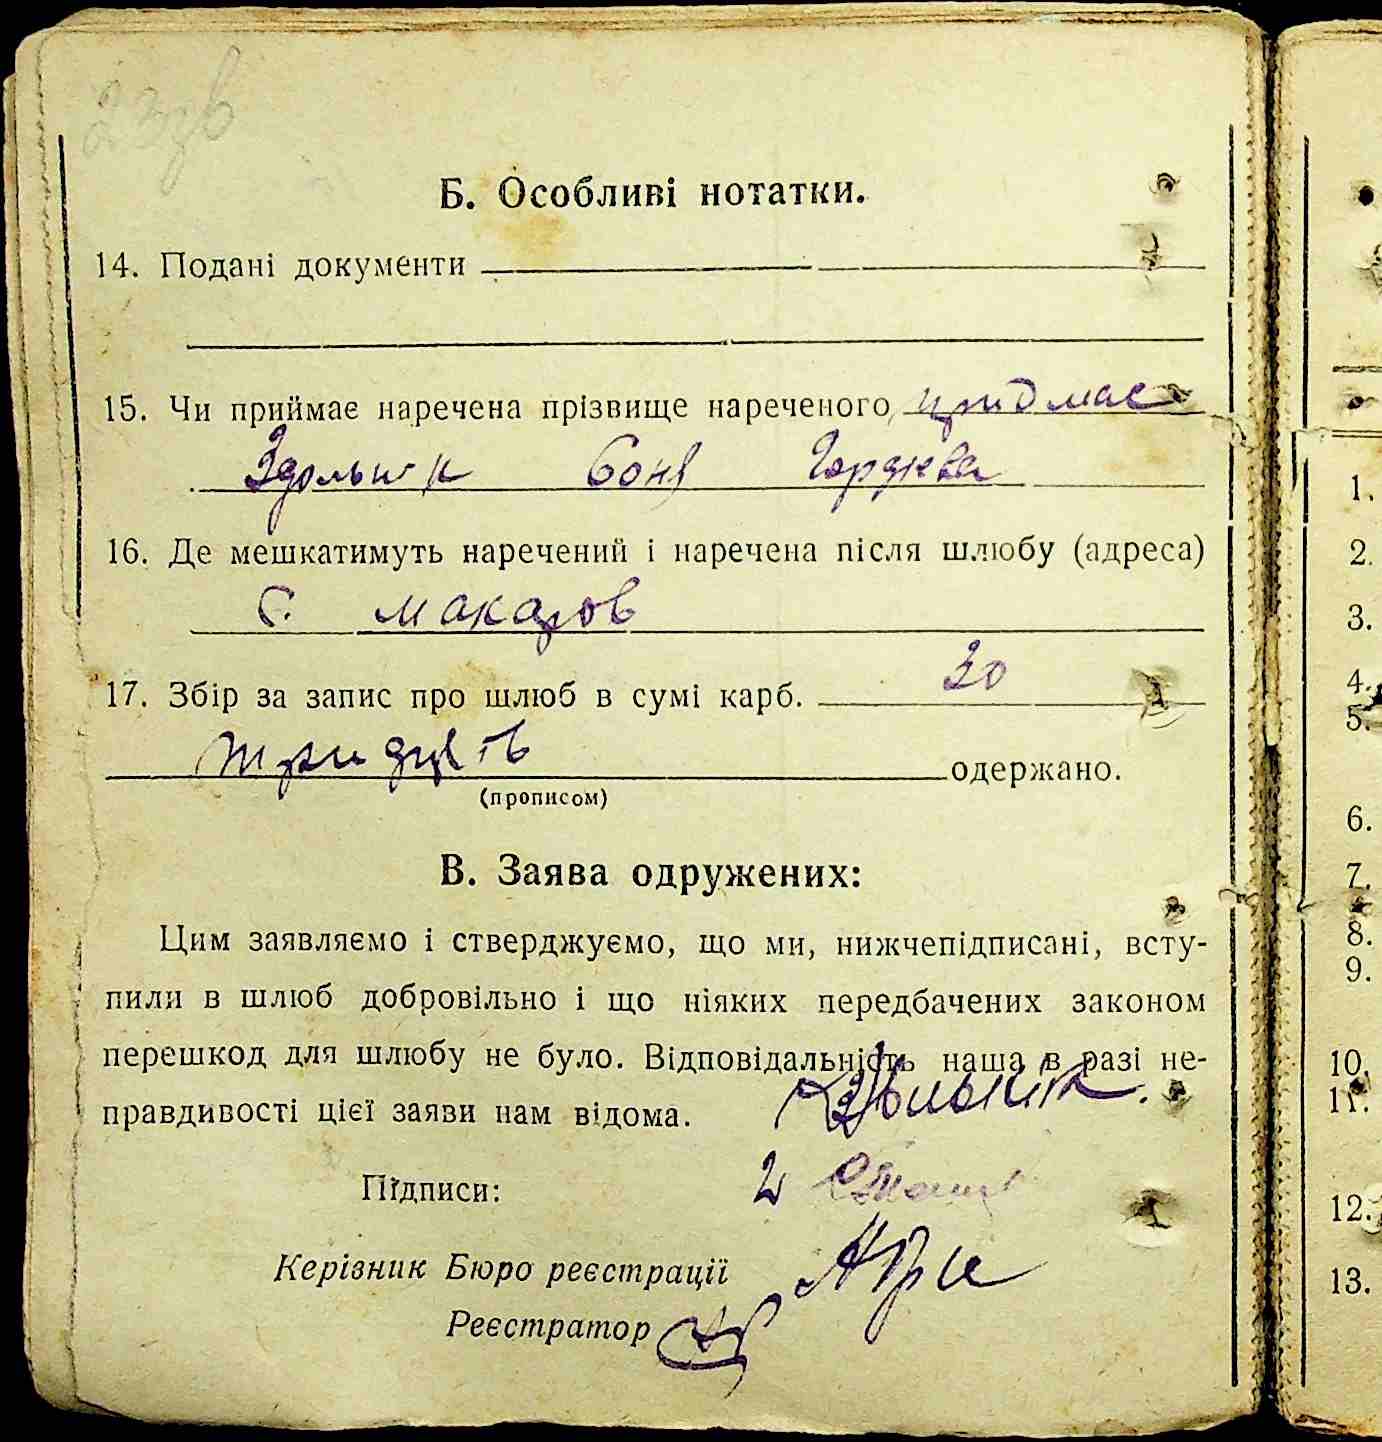 Б. Особливі нотатки.
14. Подані документи
15. Чи приймає наречена прізвище нареченого приймає
Здольник Соня
16. Де мешкатимуть наречений і наречена після шлюбу (адреса)
С. Макаров
17. Збір за запис про шлюб в сумі карб. 30
тридцять одержано.
(прописом)
В. Заява одружених:
Цим заявляємо і стверджуємо, що ми, нижчепідписані, всту-
пили в шлюб добровільно і що ніяких передбачених законом
перешкод для шлюбу не було. Відповідальність наша в разі не-
правдивості цієї заяви нам відома.
Підписи: 2
Керівник Бюро реєстрації
Реєстратор
1.
2.
3.
4.
5.
6.
7.
8.
9.
10.
11.
12.
13.